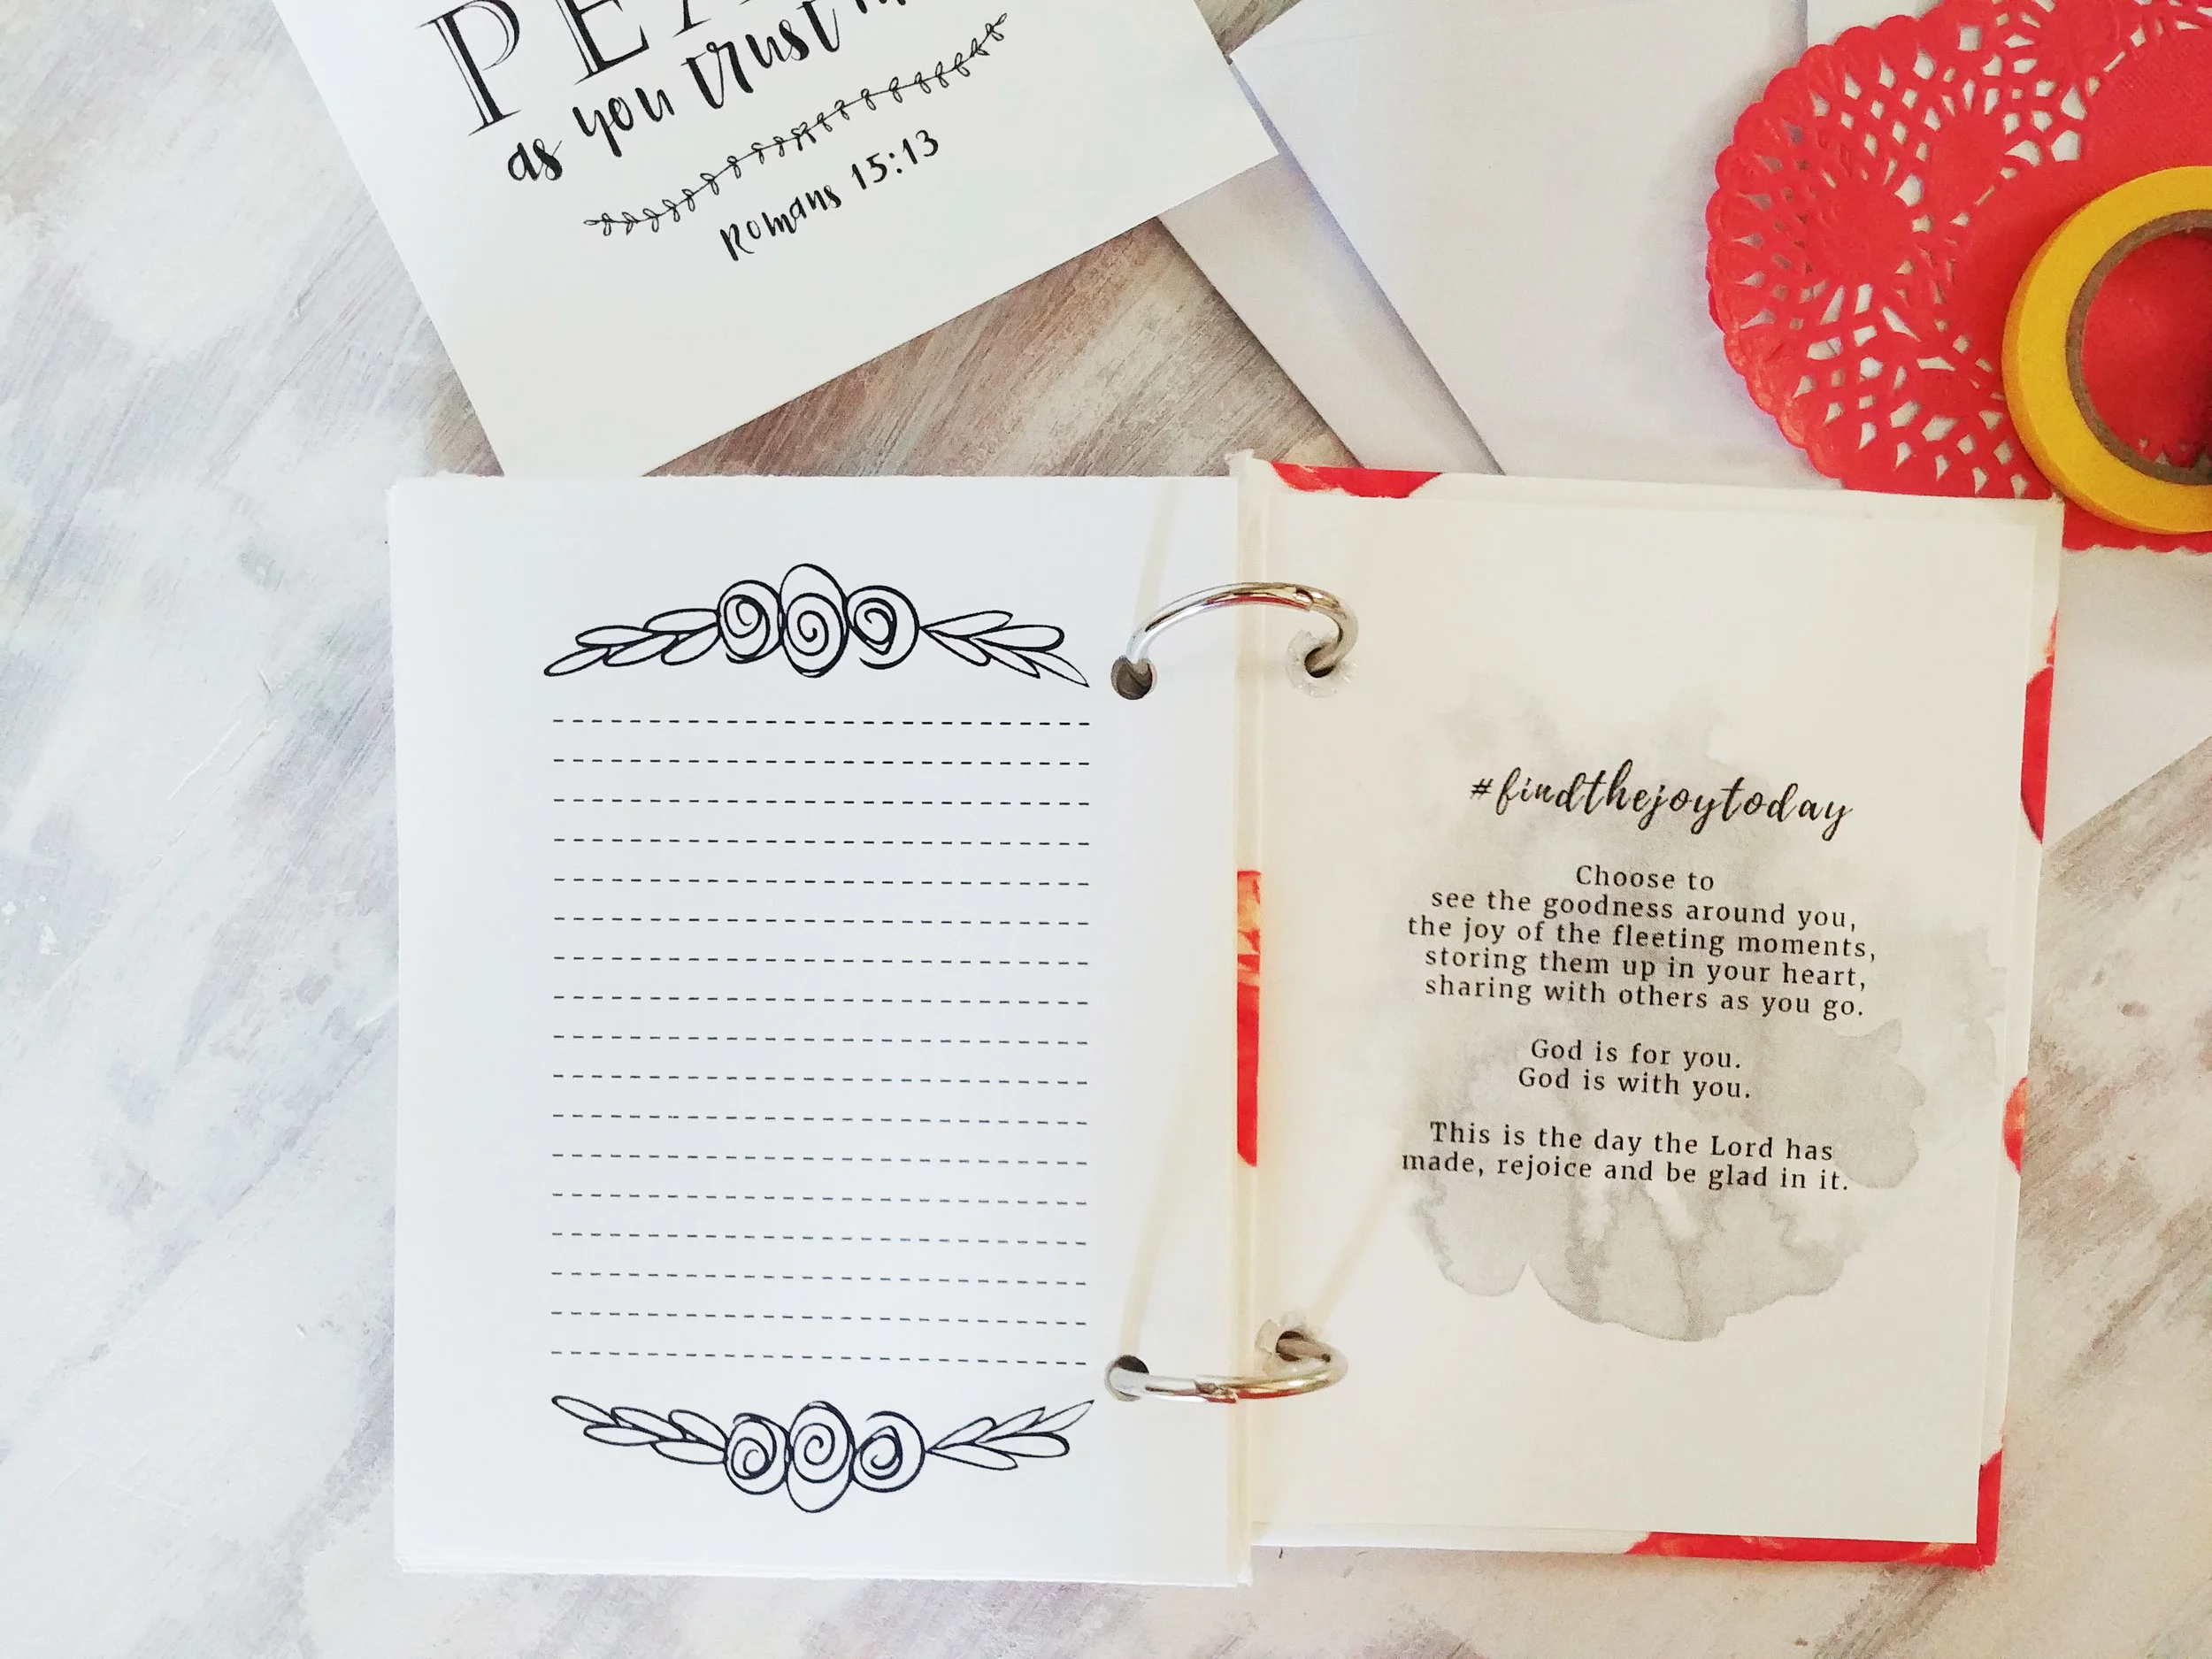 as you trust
Romans 15:13
#findthejoytoday
Choose to
see the goodness around you,
the joy of the fleeting moments,
storing them up in your heart,
sharing with others as you go.
God is for you.
God is with you.
This is the day the Lord has
made, rejoice and be glad in it.